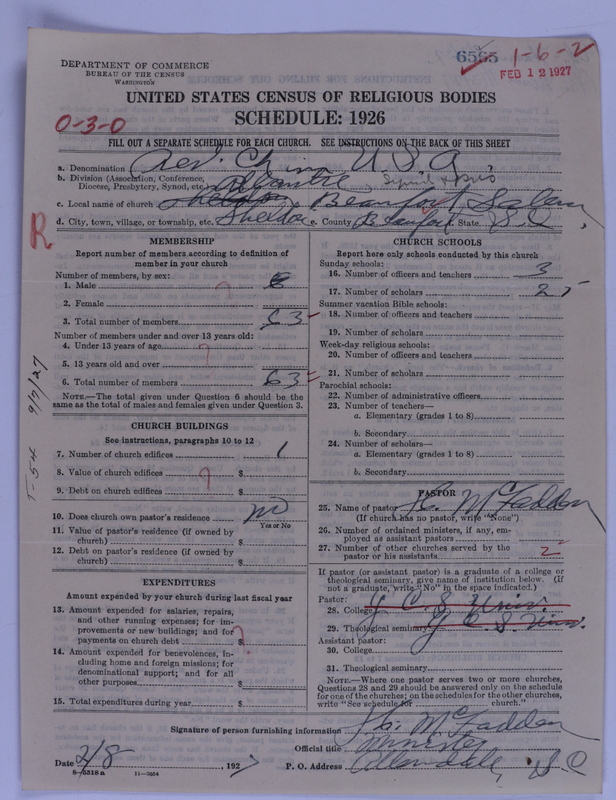 6565 1-6-2
DEPARTMENT OF COMMERCE
BUREAU OF THE CENSUS
WASHINGTON
FEB 12 1927
UNITED STATES CENSUS OF RELIGIOUS BODIES
SCHEDULE: 1926
0-3-0
FILL OUT A SEPARATE SCHEDULE FOR EACH CHURCH. SEE INSTRUCTIONS ON THE BACK OF THIS SHEET
a. Denomination U.S.A
b. Division (Association, Conference, Diocese, Presbytery, Synod, etc.) Atlantic
c. Local name of church Beaufort Salem
d. City, town, village, or township, etc. Sheldon e. County Beaufort f. State S.C
R
MEMBERSHIP
Report number of members according to definition of member in your church
Number of members, by sex:
1. Male ?
2. Female
3. Total number of members 63
Number of members under and over 13 years old:
4. Under 13 years of age ?
5. 13 years old and over
6. Total number of members 63
NOTE.—The total given under Question 6 should be the same as the total of males and females given under Question 3.
CHURCH BUILDINGS
See instructions, paragraphs 10 to 12
7. Number of church edifices 1
8. Value of church edifices ? $
9. Debt on church edifices $
10. Does church own pastor's residence no
Yes or No
11. Value of pastor's residence (if owned by church) $
12. Debt on pastor's residence (if owned by church) $
EXPENDITURES
Amount expended by your church during last fiscal year
13. Amount expended for salaries, repairs, and other running expenses; for improvements or new buildings; and for payments on church debt ? $
14. Amount expended for benevolences, including home and foreign missions; for denominational support; and for all other purposes $
15. Total expenditures during year $
9/9/27
CHURCH SCHOOLS
Report here only schools conducted by this church
Sunday schools:
16. Number of officers and teachers 3
17. Number of scholars 25
Summer vacation Bible schools:
18. Number of officers and teachers
19. Number of scholars
Week-day religious schools:
20. Number of officers and teachers
21. Number of scholars
Parochial schools:
22. Number of administrative officers
23. Number of teachers—
a. Elementary (grades 1 to 8)
b. Secondary
24. Number of scholars—
a. Elementary (grades 1 to 8)
b. Secondary
PASTOR
25. Name of pastor McFadden
(If church has no pastor, write "None")
26. Number of ordained ministers, if any, employed as assistant pastors
27. Number of other churches served by the pastor or his assistants 2
If pastor (or assistant pastor) is a graduate of a college or theological seminary, give name of institution below. (If not a graduate, write "No" in the space indicated.)
Pastor:
28. College J C S Univ.
29. Theological seminary J C S Univ.
Assistant pastor:
30. College
31. Theological seminary
NOTE.—Where one pastor serves two or more churches, Questions 28 and 29 should be answered only on the schedule for one of the churches; on the schedules for the other churches, write "See schedule for church."
Signature of person furnishing information McFadden
Official title Minister
Date 2/8, 1927 P. O. Address Allendale, S C
8-5318 a 11-3054